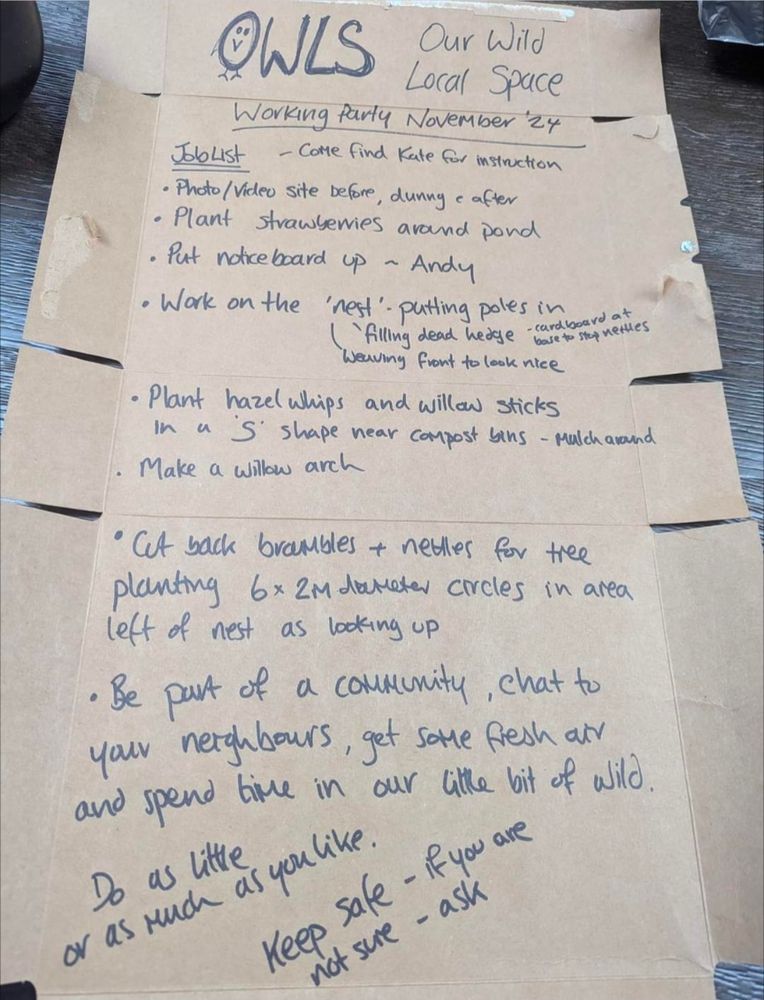 OWLS Our Wild
Local Space
Working Party November '24
Job List - Come find Kate for instruction
• Photo/Video site before, during & after
• Plant strawberries around pond
• Put noticeboard up ~ Andy
• Work on the 'nest' - putting poles in
filling dead hedge - cardboard at
base to stop nettles
Weaving front to look nice
• Plant hazel whips and willow sticks
in a 'S' shape near compost bins - mulch around
• Make a willow arch
• Cut back brambles + nettles for tree
planting 6 x 2M diameter circles in area
left of nest as looking up
• Be part of a community, chat to
your neighbours, get some fresh air
and spend time in our little bit of wild.
Do as little
or as much as you like.
Keep safe - if you are
not sure - ask